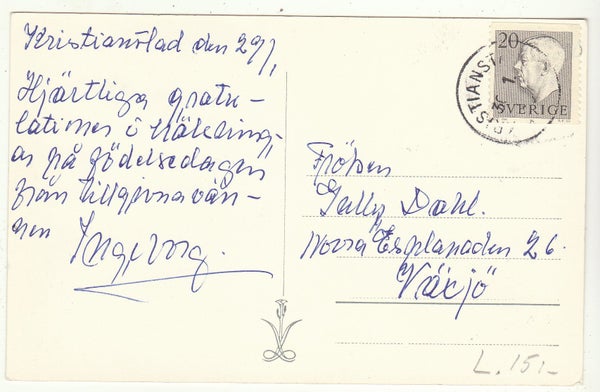 Kristianstad den 29/1
Hjärtliga gratu-
lationer o hälsning-
ar på födelsedagen
från tillgivna vän-
nen Ingeborg.
20
SVERIGE
Fröken
Gully Dahl.
Norra Esplanaden 26.
Växjö
L. 15:-